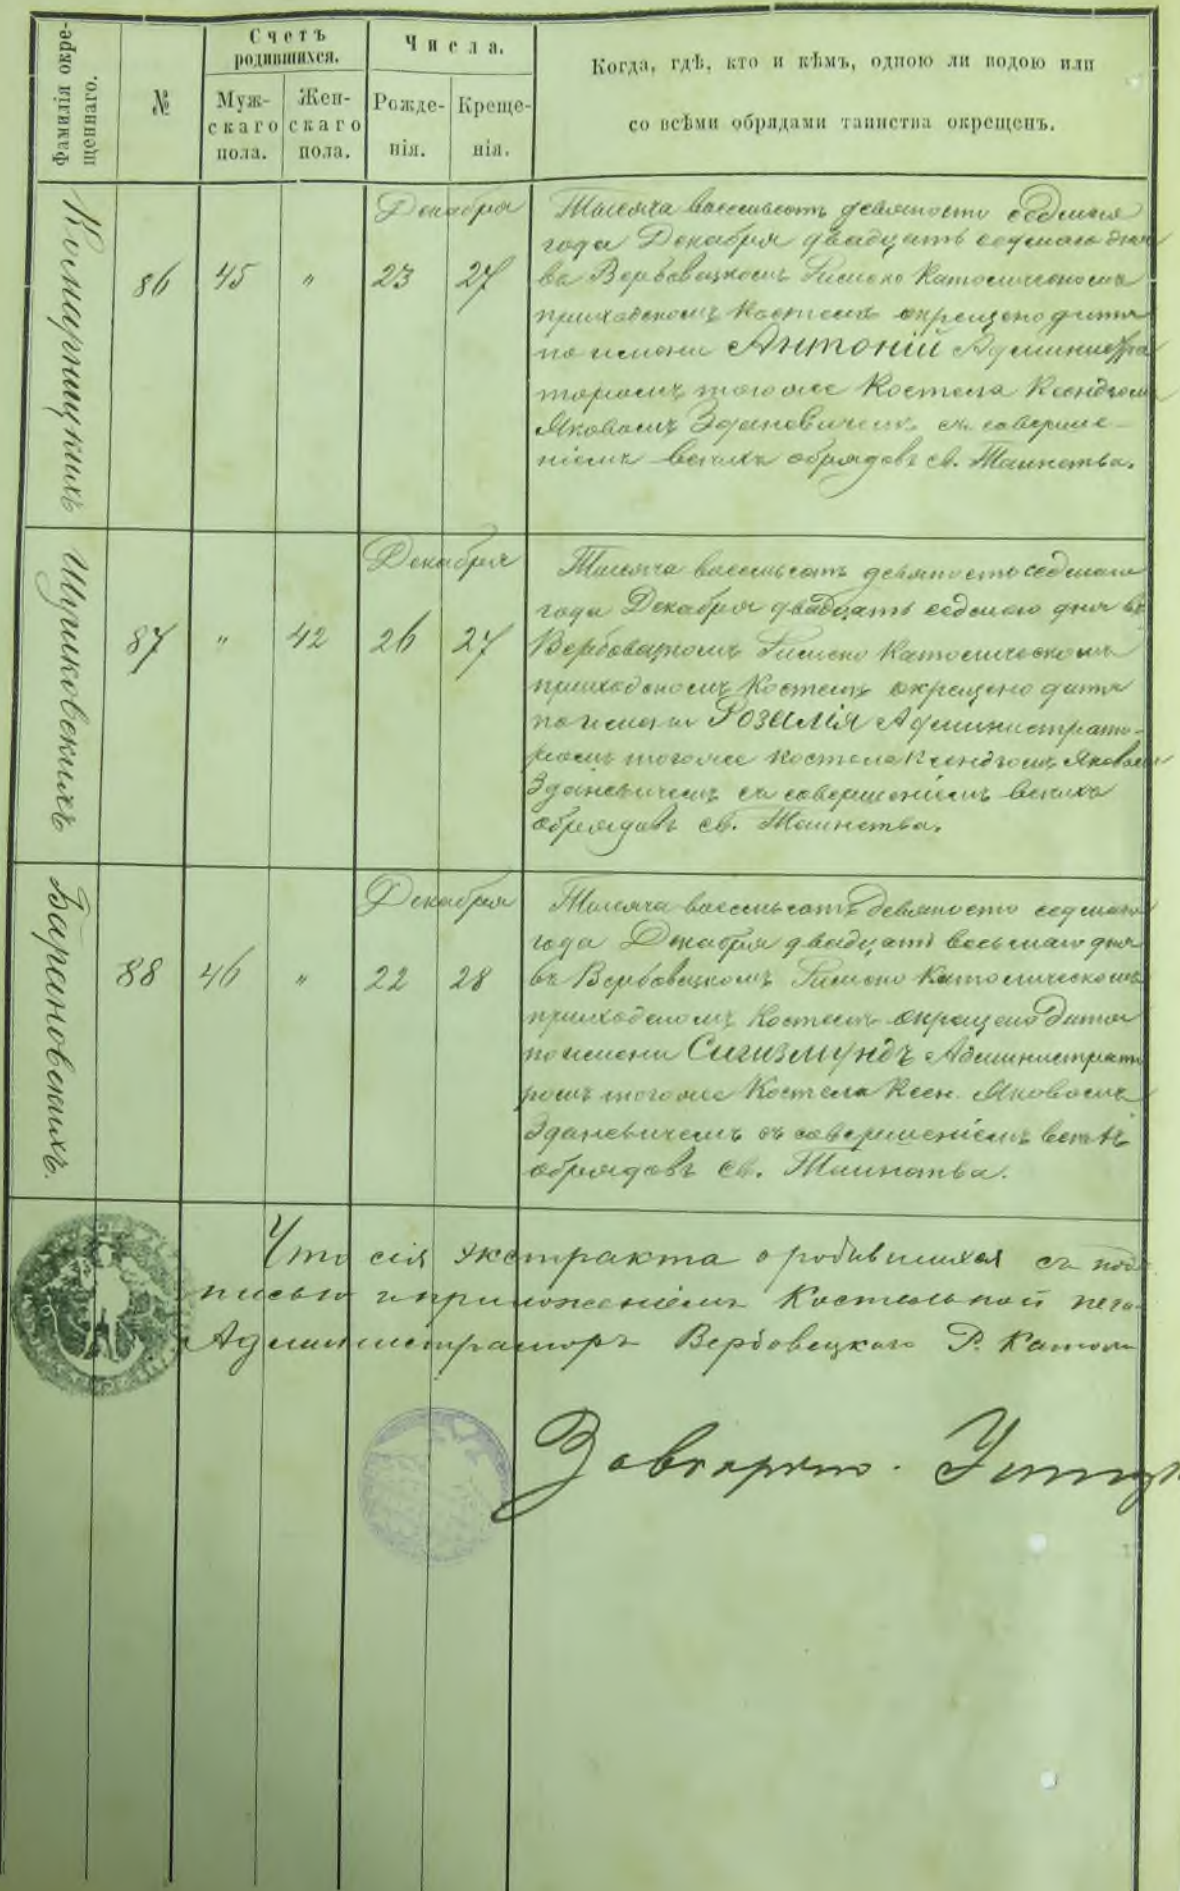 Фамилія окре-
щеннаго.
№
Счетъ
родившихся.
Муж-
скаго
пола.
Жен-
скаго
пола.
Числа.
Рожде-
нія.
Креще-
нія.
Когда, гдѣ, кто и кѣмъ, одною ли водою или
со всѣми обрядами таинства окрещенъ.
Комарницкихъ
86
45
"
Декабря
23
27
Тысяча восемьсотъ девяносто седьмаго
года Декабря двадцать седьмаго дня
въ Вербовецкомъ Римско Католическомъ
приходскомъ Костелѣ окрещено дитя
по имени Антоній Администра
торомъ того же Костела Ксендзомъ
Яковомъ Здановичемъ съ соверше-
ніемъ всѣхъ обрядовъ св. Таинства.
87
"
42
Декабря
26
27
Тысяча восемьсотъ девяносто седьмаго
года Декабря двадцать седьмаго дня въ
Вербовецкомъ Римско Католическомъ
приходскомъ Костелѣ окрещено дитя
по имени Розалія Администрато-
ромъ того же Костела Ксендзомъ Яковомъ
Здановичемъ съ совершеніемъ всѣхъ
обрядовъ св. Таинства.
Барановскихъ.
88
46
"
Декабря
22
28
Тысяча восемьсотъ девяносто седьмаго
года Декабря двадцать восьмаго дня
въ Вербовецкомъ Римско Католическомъ
приходскомъ Костелѣ окрещено дитя
по имени Сигизмундъ Администрато
ромъ того же Костела Ксен. Яковомъ
Здановичемъ съ совершеніемъ всѣхъ
обрядовъ св. Таинства.
Что сія экстракта о родившихся съ под
писью и приложеніемъ Костельной печа
Администраторъ Вербовецкаго Р. Катол